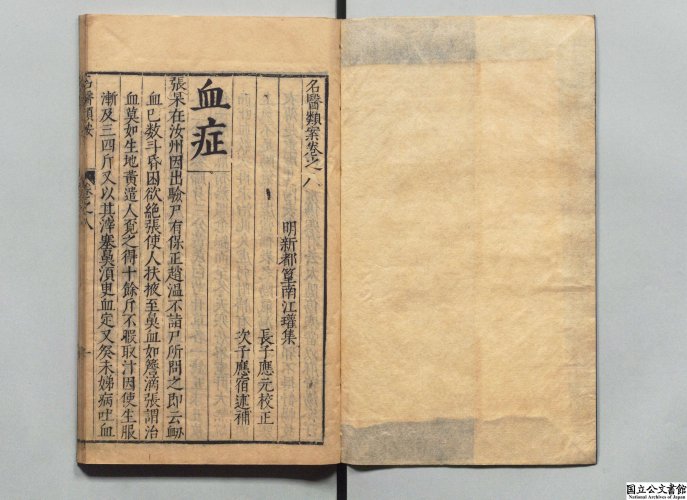 名醫類案卷之八
明新都篁南江瓘集
長子應元校正
次子應宿述補
血症
張杲在汝州因出驗尸有保正趙溫不詣尸所問之即云衂
血已数斗昏困欲絶張使人扶掖至鼻血如簷滴張謂治
血莫如生地黄遣人覓之得十餘斤不暇取汁因使生服
漸及三四斤又以其滓塞鼻須臾血定又癸未娣病吐血
名醫類案
卷之八
国立公文書館
National Archives of Japan